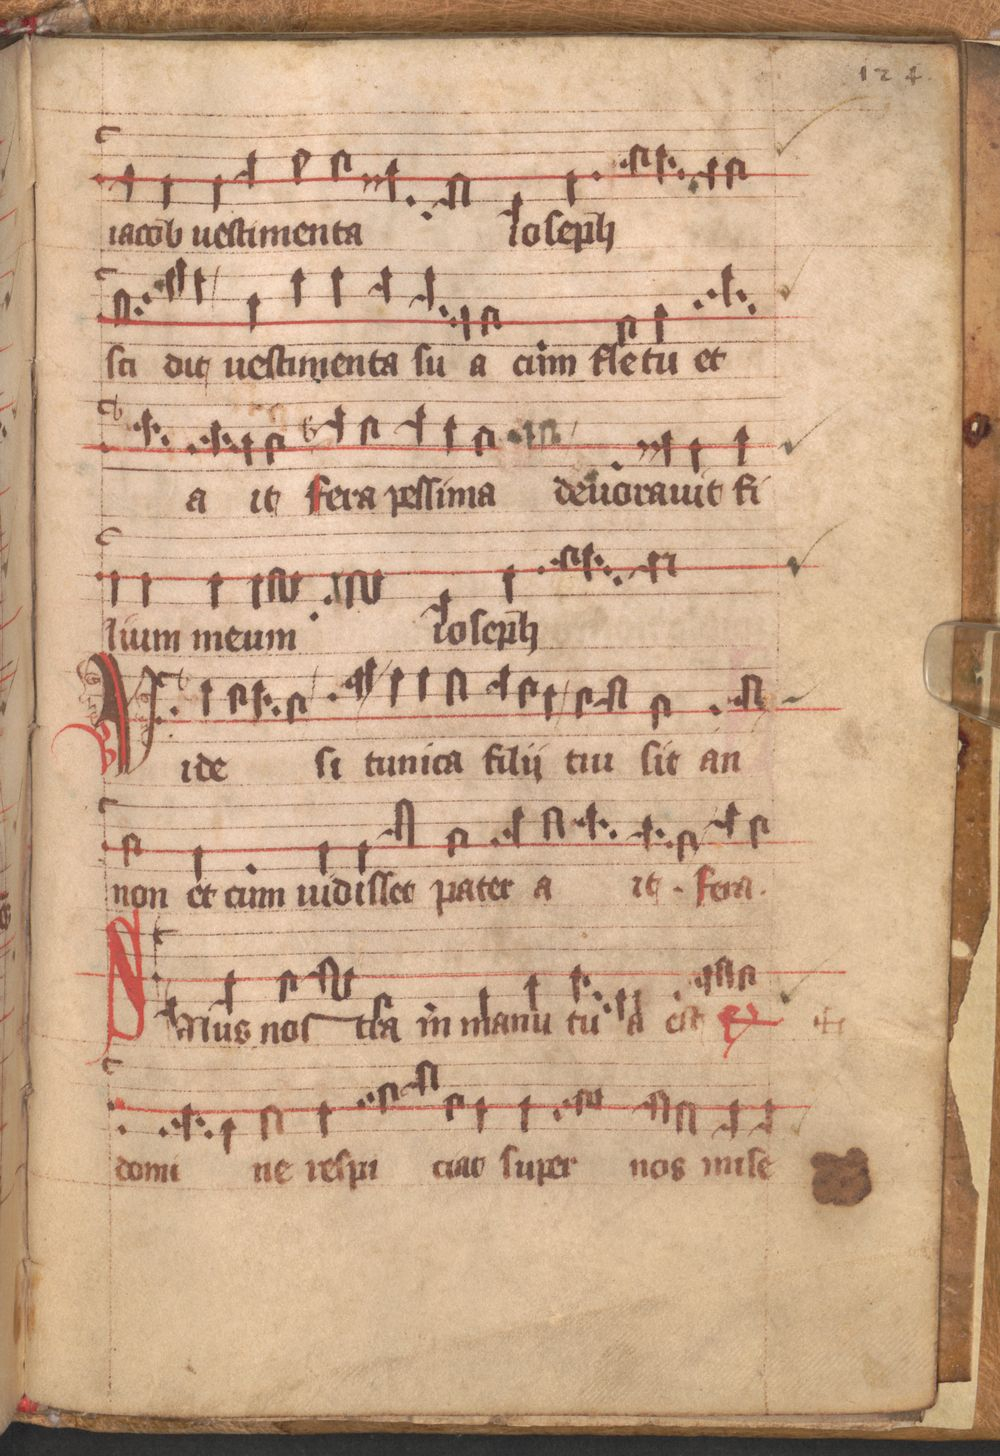 124.
iacob vestimenta Ioseph
sci dit vestimenta su a cum fletu et
a it fera pessima devoravit fi
lium meum Ioseph
Vide si tunica filij tui sit an
non et cum vidisset pater a it. fera.
Salus nos tra in manu tu a est
domi ne respi ciat super nos mise